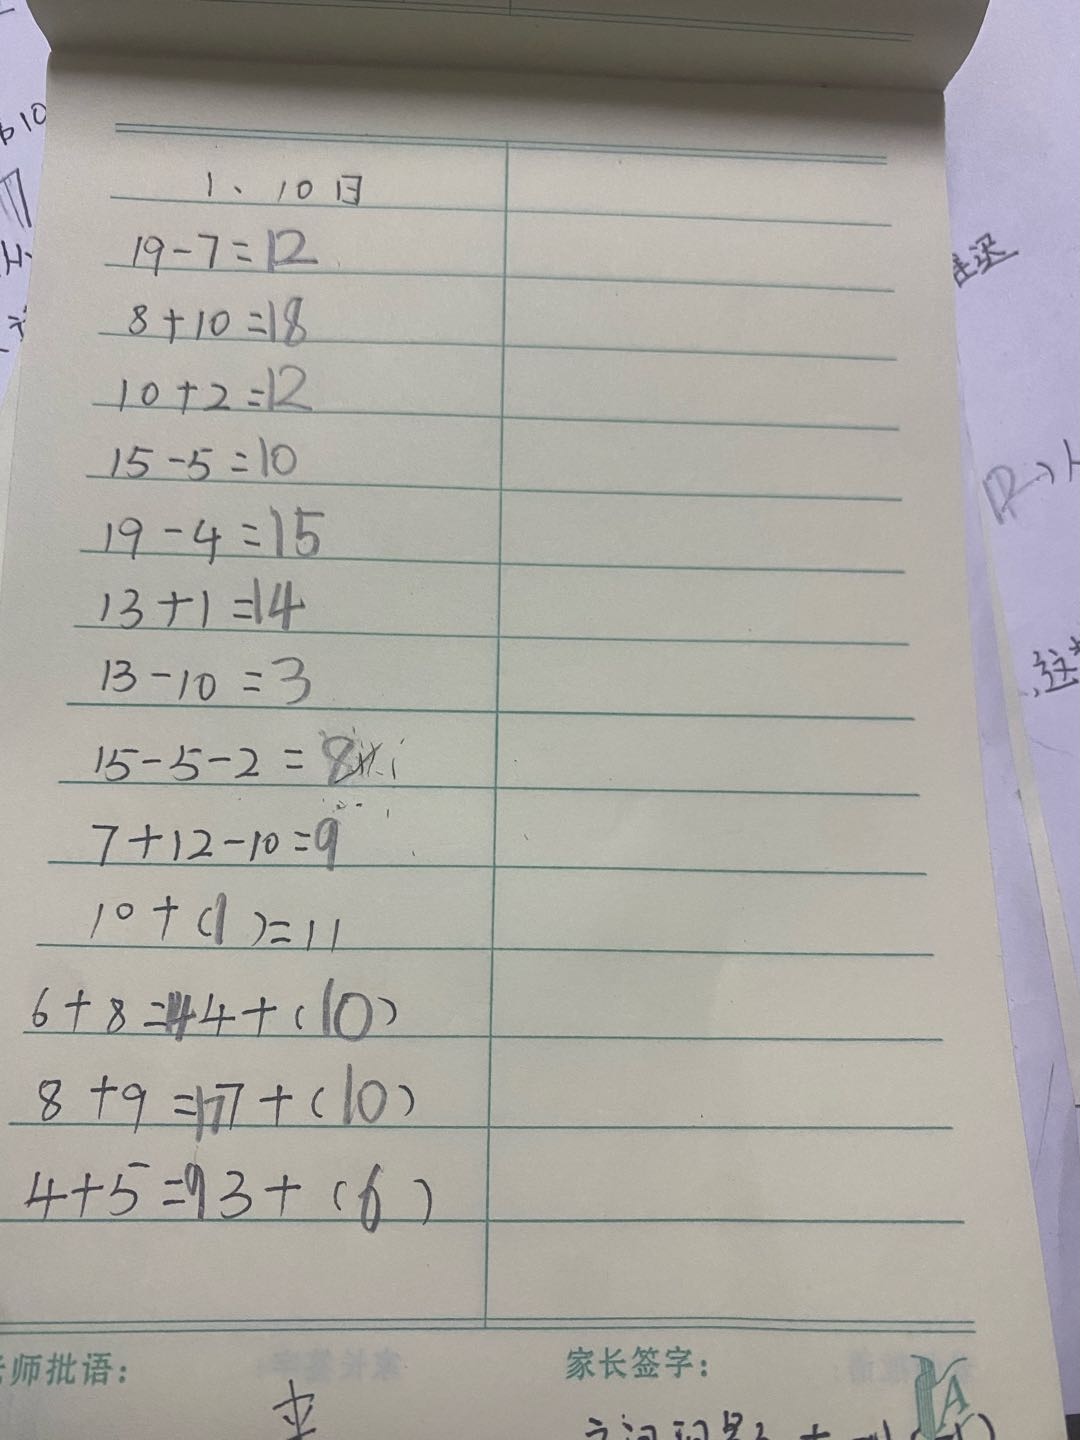 1、10日
19-7=12
8+10=18
10+2=12
15-5=10
19-4=15
13+1=14
13-10=3
15-5-2=8
7+12-10=9
10+(1)=11
6+8=14 4+(10)
8+9=17 7+(10)
4+5=9 3+(6)
师批语:
家长签字: